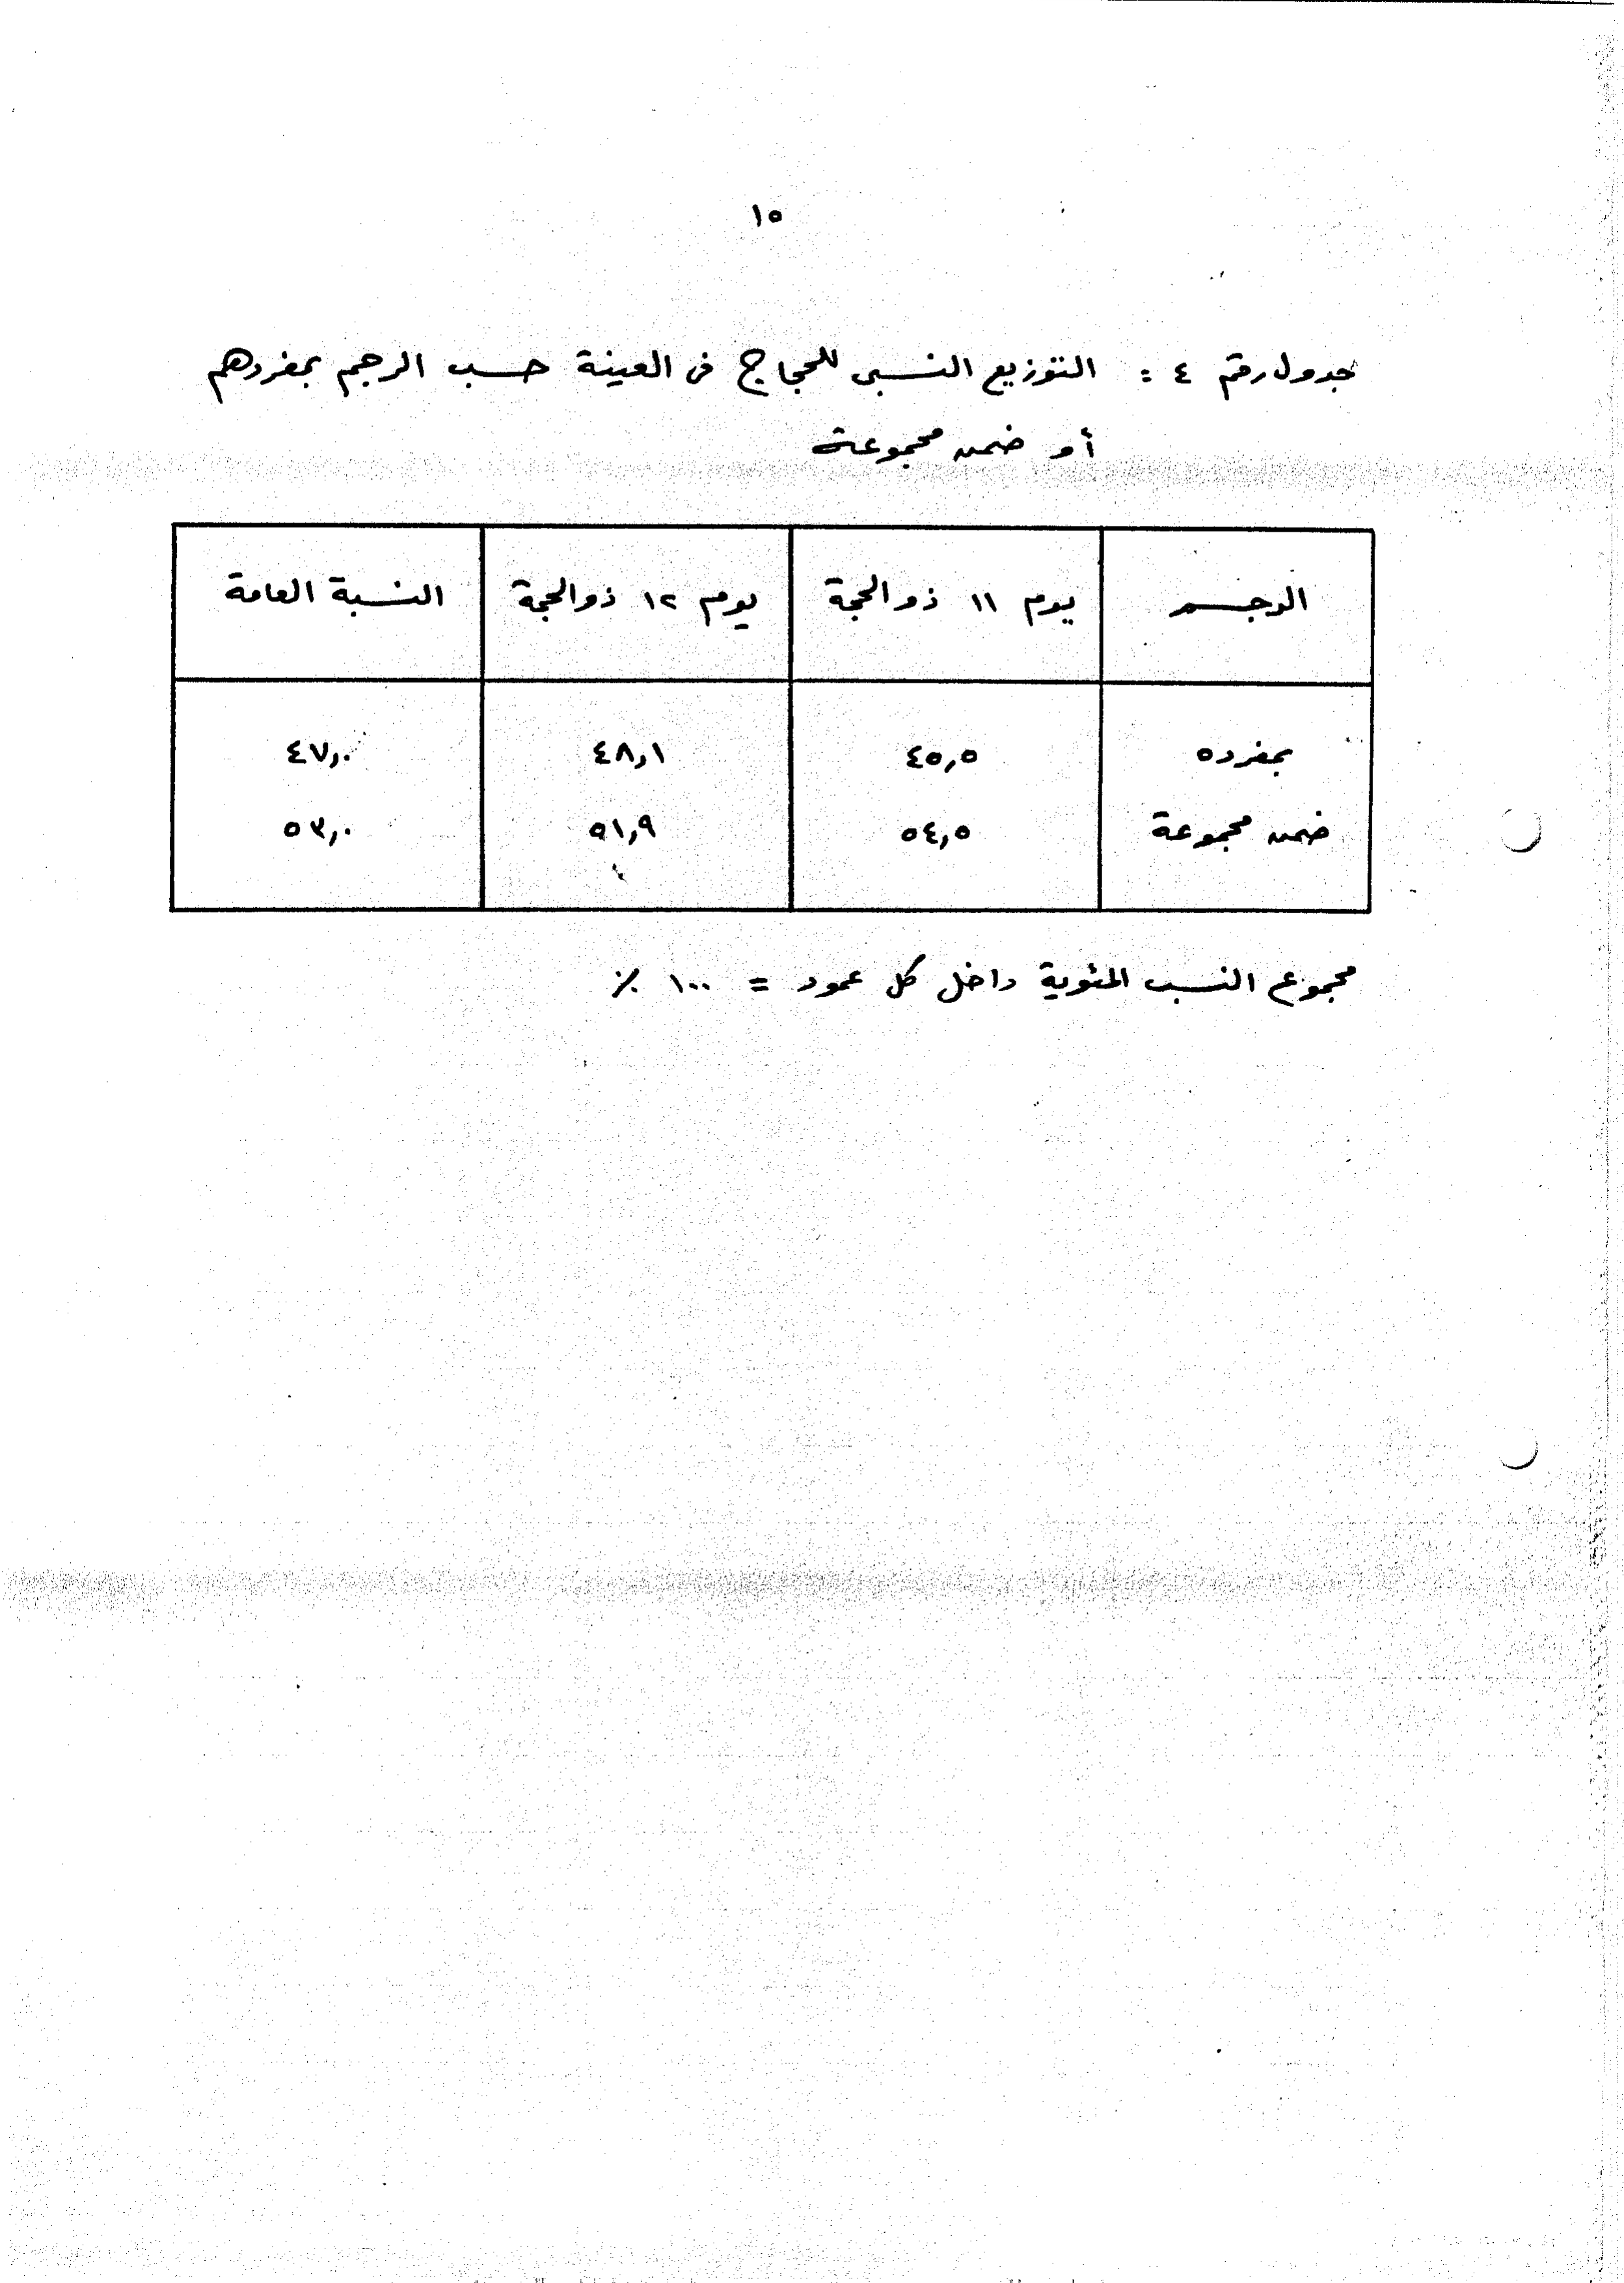 ١٥
جدول رقم ٤ : التوزيع النسبى للحجاج فى العينة حسب الرجم بمفردهم
أو ضمن مجموعة
الرجم يوم ١١ ذو الحجة يوم ١٢ ذو الحجة النسبة العامة
بمفرده ٤٥,٥ ٤٨,١ ٤٧,٠
ضمن مجموعة ٥٤,٥ ٥١,٩ ٥٣,٠
مجموع النسب المئوية داخل كل عمود = ١٠٠ ٪